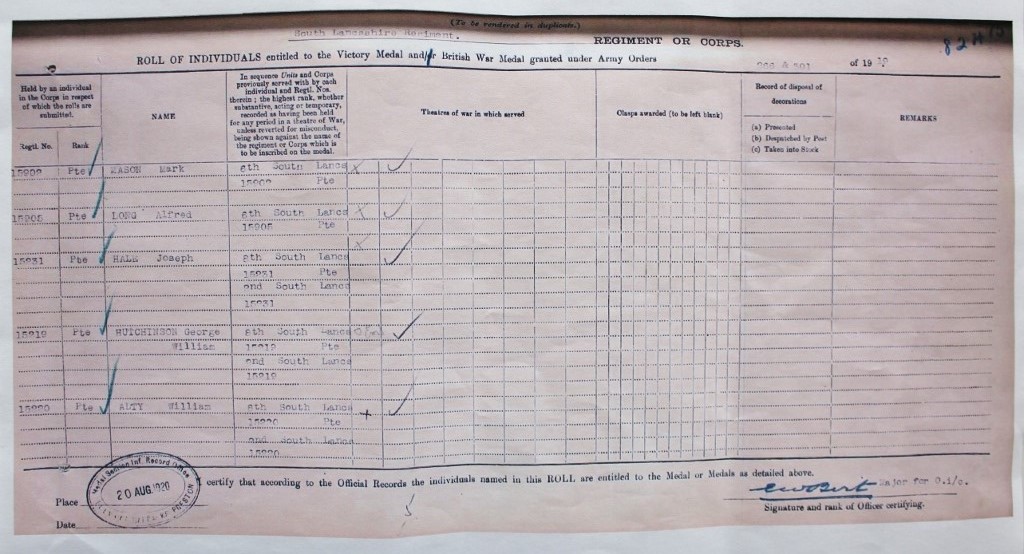 (To be rendered in duplicate.)
South Lancashire Regiment. REGIMENT OR CORPS.
ROLL OF INDIVIDUALS entitled to the Victory Medal and/or British War Medal granted under Army Orders of 19
Held by an individual in the Corps in respect of which the rolls are submitted.
Regtl. No.
Rank
NAME
In sequence Units and Corps
previously served with by each
individual and Regtl. Nos.
therein; the highest rank, whether
substantive, acting or temporary,
recorded as having been held
for any period in a theatre of War,
unless reverted for misconduct,
being shown against the name of
the regiment or Corps which is
to be inscribed on the medal.
Theatres of war in which served
Clasps awarded (to be left blank)
Record of disposal of
decorations
(a) Presented
(b) Despatched by Post
(c) Taken into Stock
REMARKS
Pte Mark South Lancs
Pte
15905 Pte LONG Alfred 8th South Lancs
15905 Pte
15931 Pte HALE Joseph 8th South Lancs
15931 Pte
2nd South Lancs
15931
15919 Pte HUTCHINSON George 8th South Lancs
William 15919 Pte
2nd South Lancs
15919
Pte ALTY William 8th South Lancs
Pte
2nd South Lancs
certify that according to the Official Records the individuals named in this ROLL are entitled to the Medal or Medals as detailed above.
Medal Section Inf. Record Office
20 AUG 1920
PRESTON
Place
Date
Major for O.i/c.
Signature and rank of Officer certifying.